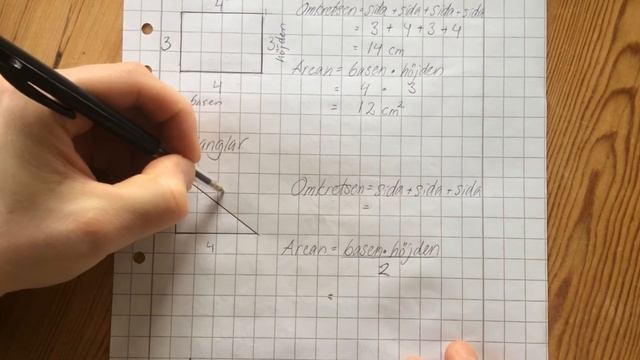 4
Omkretsen = sida + sida + sida + sida
3
3 höjden
= 3 + 4 + 3 + 4
= 14 cm
Arean = basen · höjden
4
= 4 · 3
basen
= 12 cm²
Omkretsen = sida + sida + sida
=
4
Arean = basen · höjden
2
=